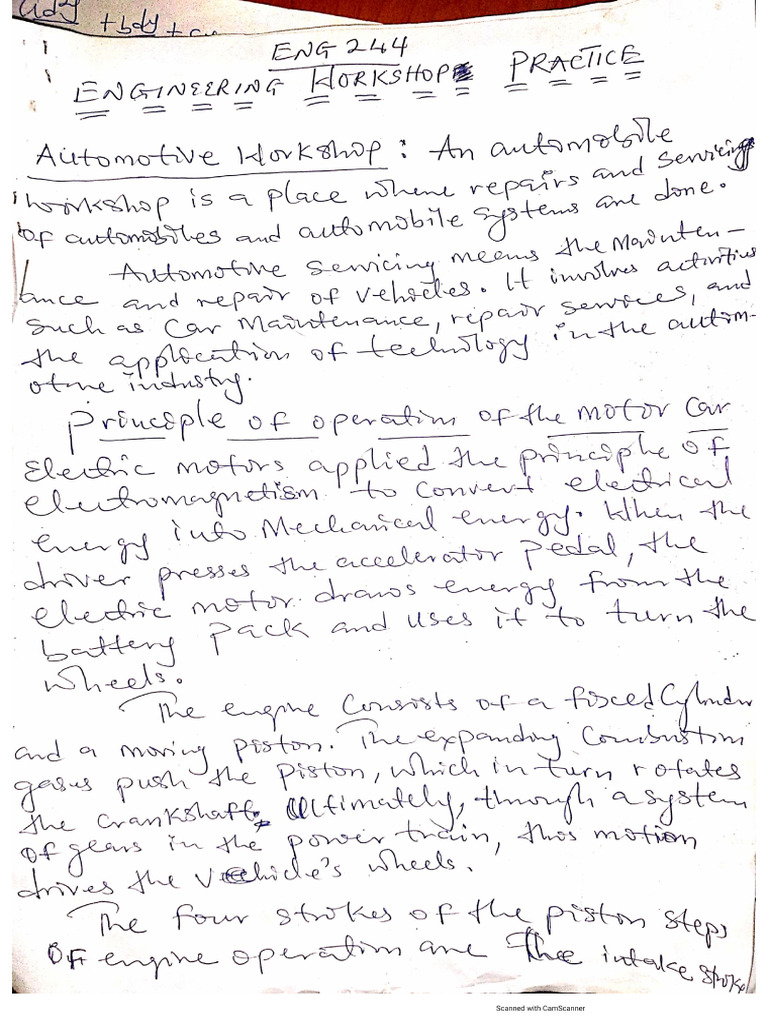 + bdy +
ENG 244
ENGINEERING WORKSHOP PRACTICE
Automotive Workshop: An automobile
workshop is a place where repairs and servicing
of automobiles and automobile systems are done.
Automotive servicing means the mainten-
ance and repair of vehicles. It involves activities
such as Car Maintenance, repair services, and
the application of technology in the autom-
otive industry.
Principle of operation of the motor Car
Electric motors applied the principle of
electromagnetism to convert electrical
energy into Mechanical energy. When the
driver presses the accelerator pedal, the
electric motor draws energy from the
battery pack and uses it to turn the
wheels.
The engine Consists of a fixed Cylinder
and a moving piston. The expanding Combustion
gases push the piston, which in turn rotates
the crankshaft. Ultimately, through a system
of gears in the power train, this motion
drives the vehicle's wheels.
The four strokes of the piston steps
of engine operation are The intake stroke
Scanned with CamScanner